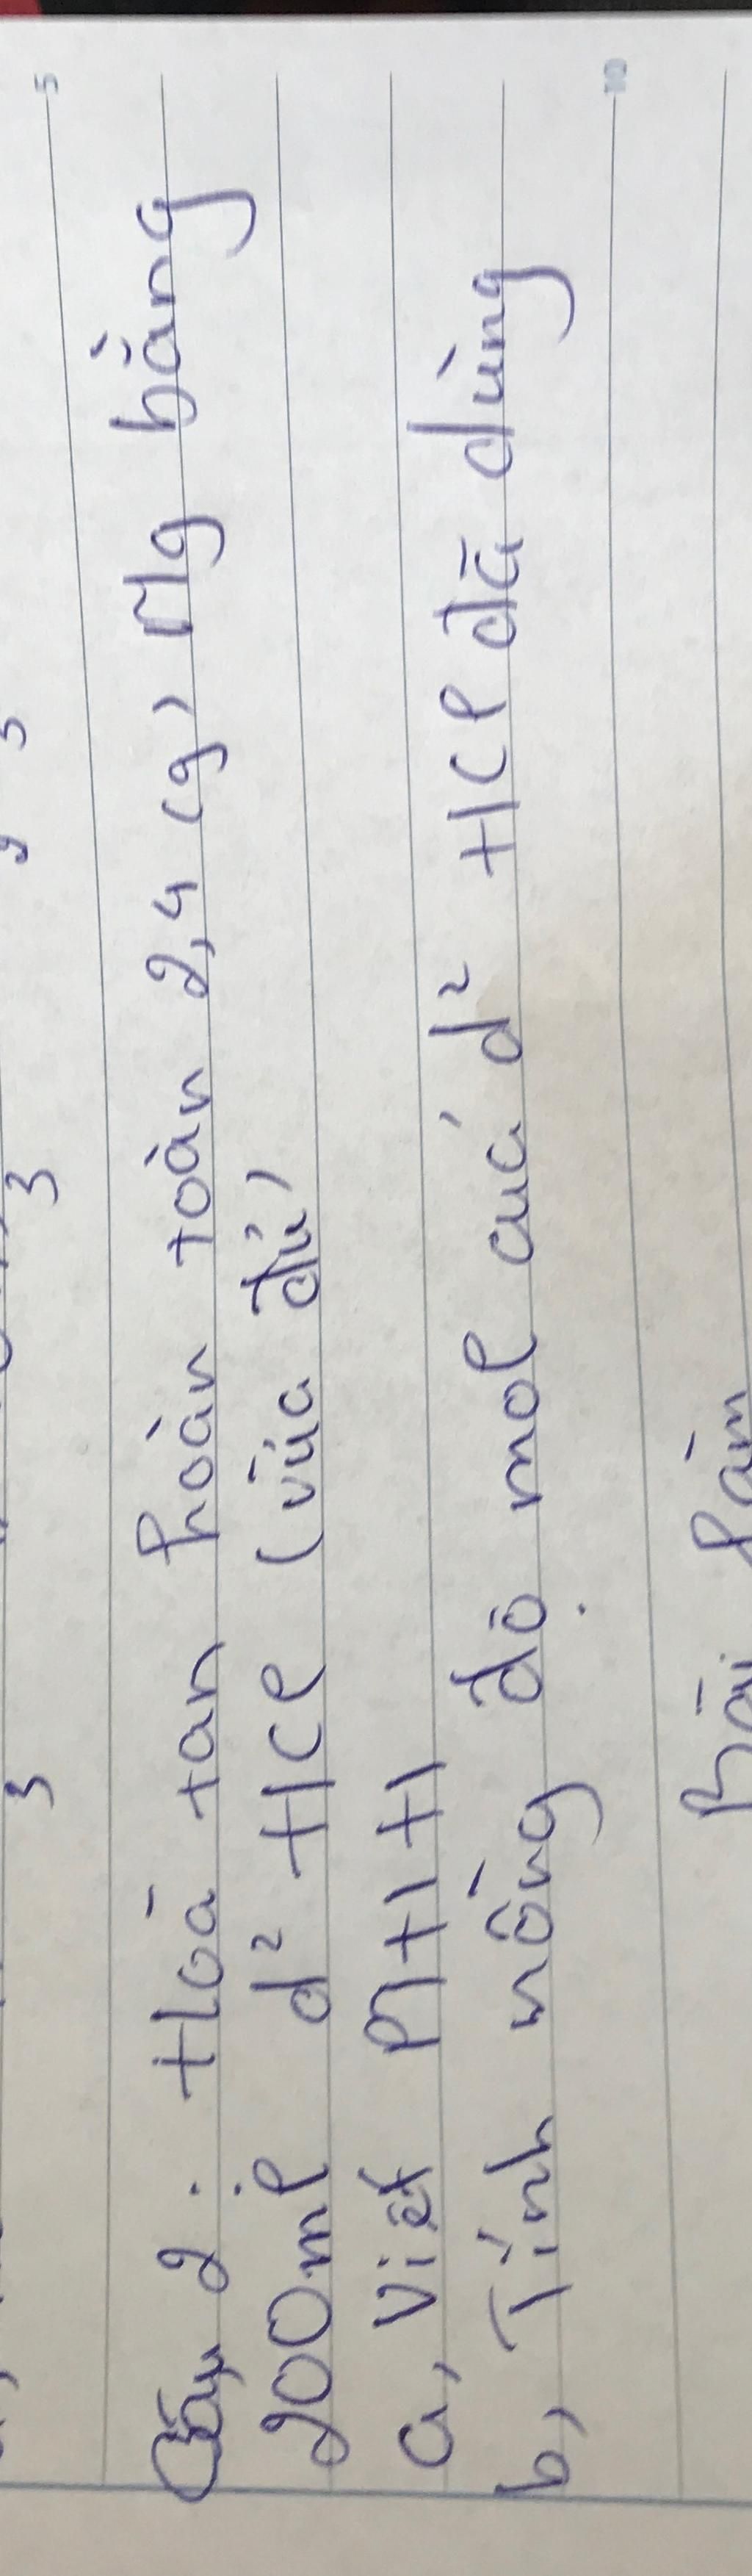 5
10
Câu 2: Hoà tan hoàn toàn 2,4 (g) Mg bằng
200ml d² HCl (vừa đủ)
a, Viết PTHH
b, Tính nồng độ mol của d² HCl đã dùng
Bài làm